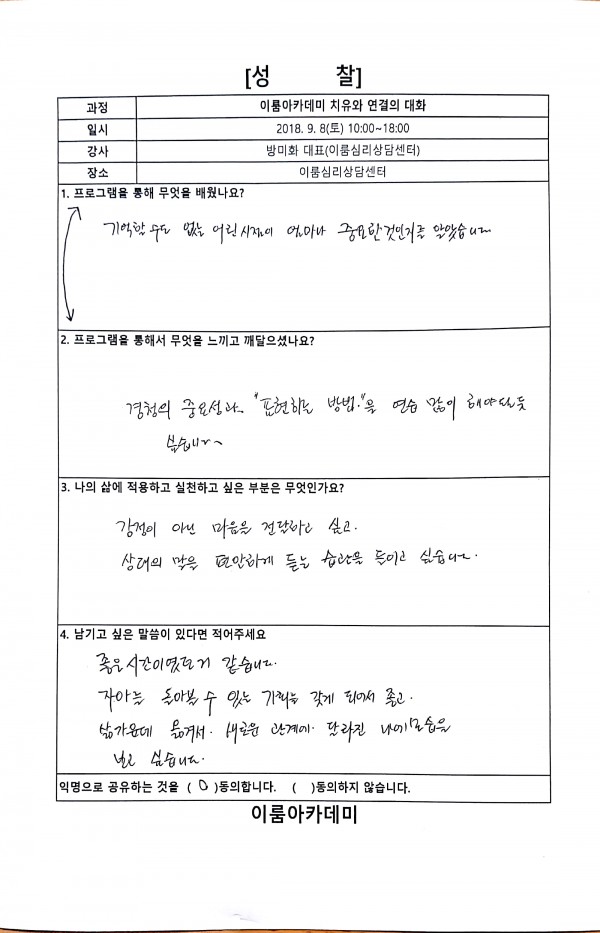 [성 찰]
과정 이룸아카데미 치유와 연결의 대화
일시 2018. 9. 8(토) 10:00~18:00
강사 방미화 대표(이룸심리상담센터)
장소 이룸심리상담센터
1. 프로그램을 통해 무엇을 배웠나요?
기억할 수도 없는 어린시절이 얼마나 중요한것인지를 알았습니다.
2. 프로그램을 통해서 무엇을 느끼고 깨달으셨나요?
경청의 중요성과. "표현하는 방법."을 연습 많이 해야될듯
싶습니다~
3. 나의 삶에 적용하고 실천하고 싶은 부분은 무엇인가요?
감정이 아닌 마음을 전달하고 싶고.
상대의 말을 편안하게 듣는 습관을 들이고 싶습니다.
4. 남기고 싶은 말씀이 있다면 적어주세요
좋은시간이였던거 같습니다.
자아를 돌아볼 수 있는 기회를 갖게 되어서 좋고.
삶가운데 옮겨서. 새로운 관계에. 달라진 나에모습을
보고 싶습니다.
익명으로 공유하는 것을 ( O )동의합니다. ( )동의하지 않습니다.
이룸아카데미